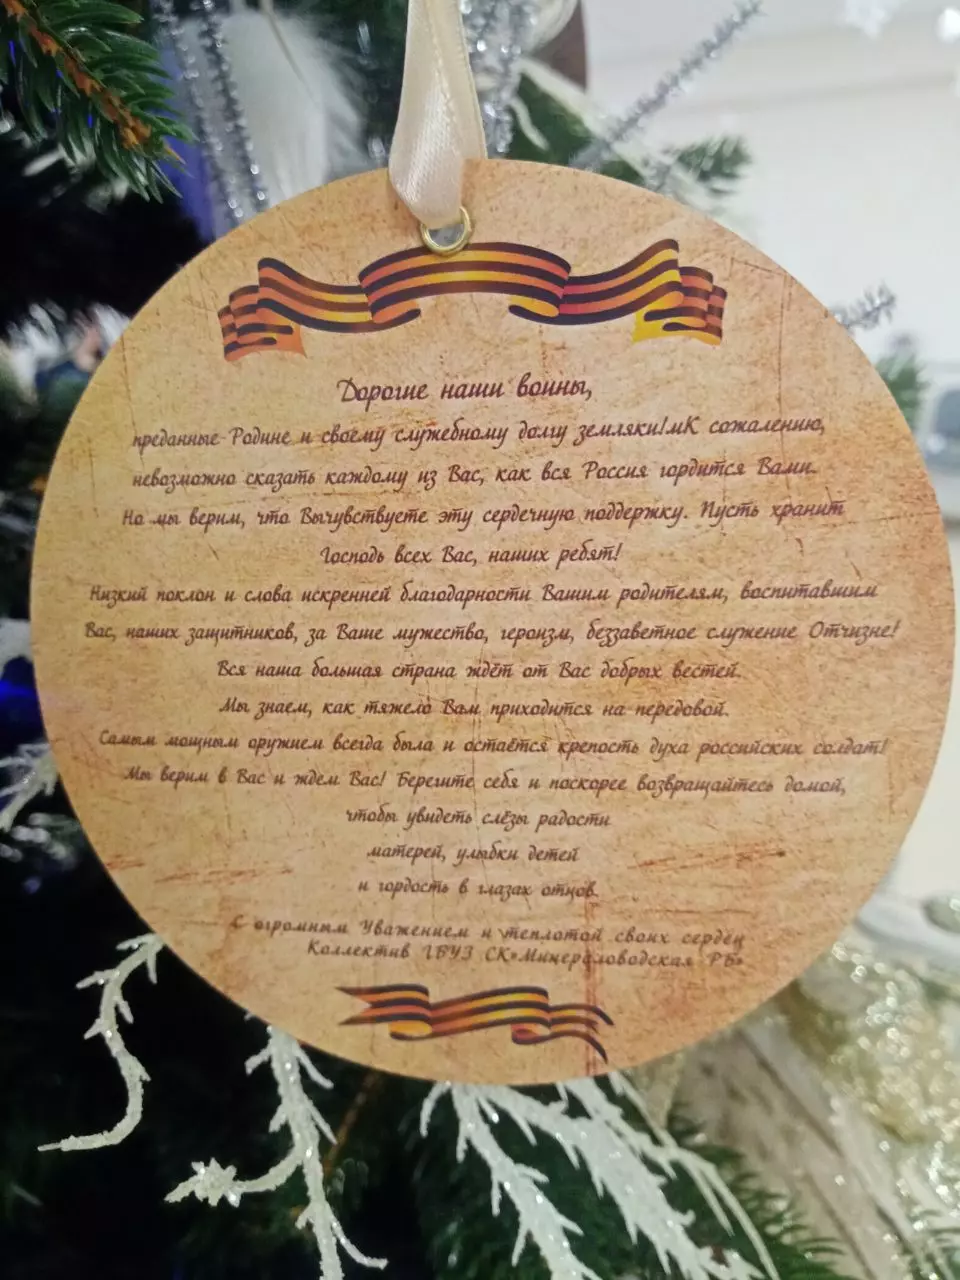 Дорогие наши воины,
преданные Родине и своему служебному долгу земляки!мК сожалению,
невозможно сказать каждому из Вас, как вся Россия гордится Вами.
Но мы верим, что Вычувствуете эту сердечную поддержку. Пусть хранит
Господь всех Вас, наших ребят!
Низкий поклон и слова искренней благодарности Вашим родителям, воспитавшим
Вас, наших защитников, за Ваше мужество, героизм, беззаветное служение Отчизне!
Вся наша большая страна ждёт от Вас добрых вестей.
Мы знаем, как тяжело Вам приходится на передовой.
Самым мощным оружием всегда была и остаётся крепость духа российских солдат!
Мы верим в Вас и ждем Вас! Берегите себя и поскорее возвращайтесь домой,
чтобы увидеть слёзы радости
матерей, улыбки детей
и гордость в глазах отцов.
С огромным Уважением и теплотой своих сердец
Коллектив ГБУЗ СК»Минераловодская РБ»